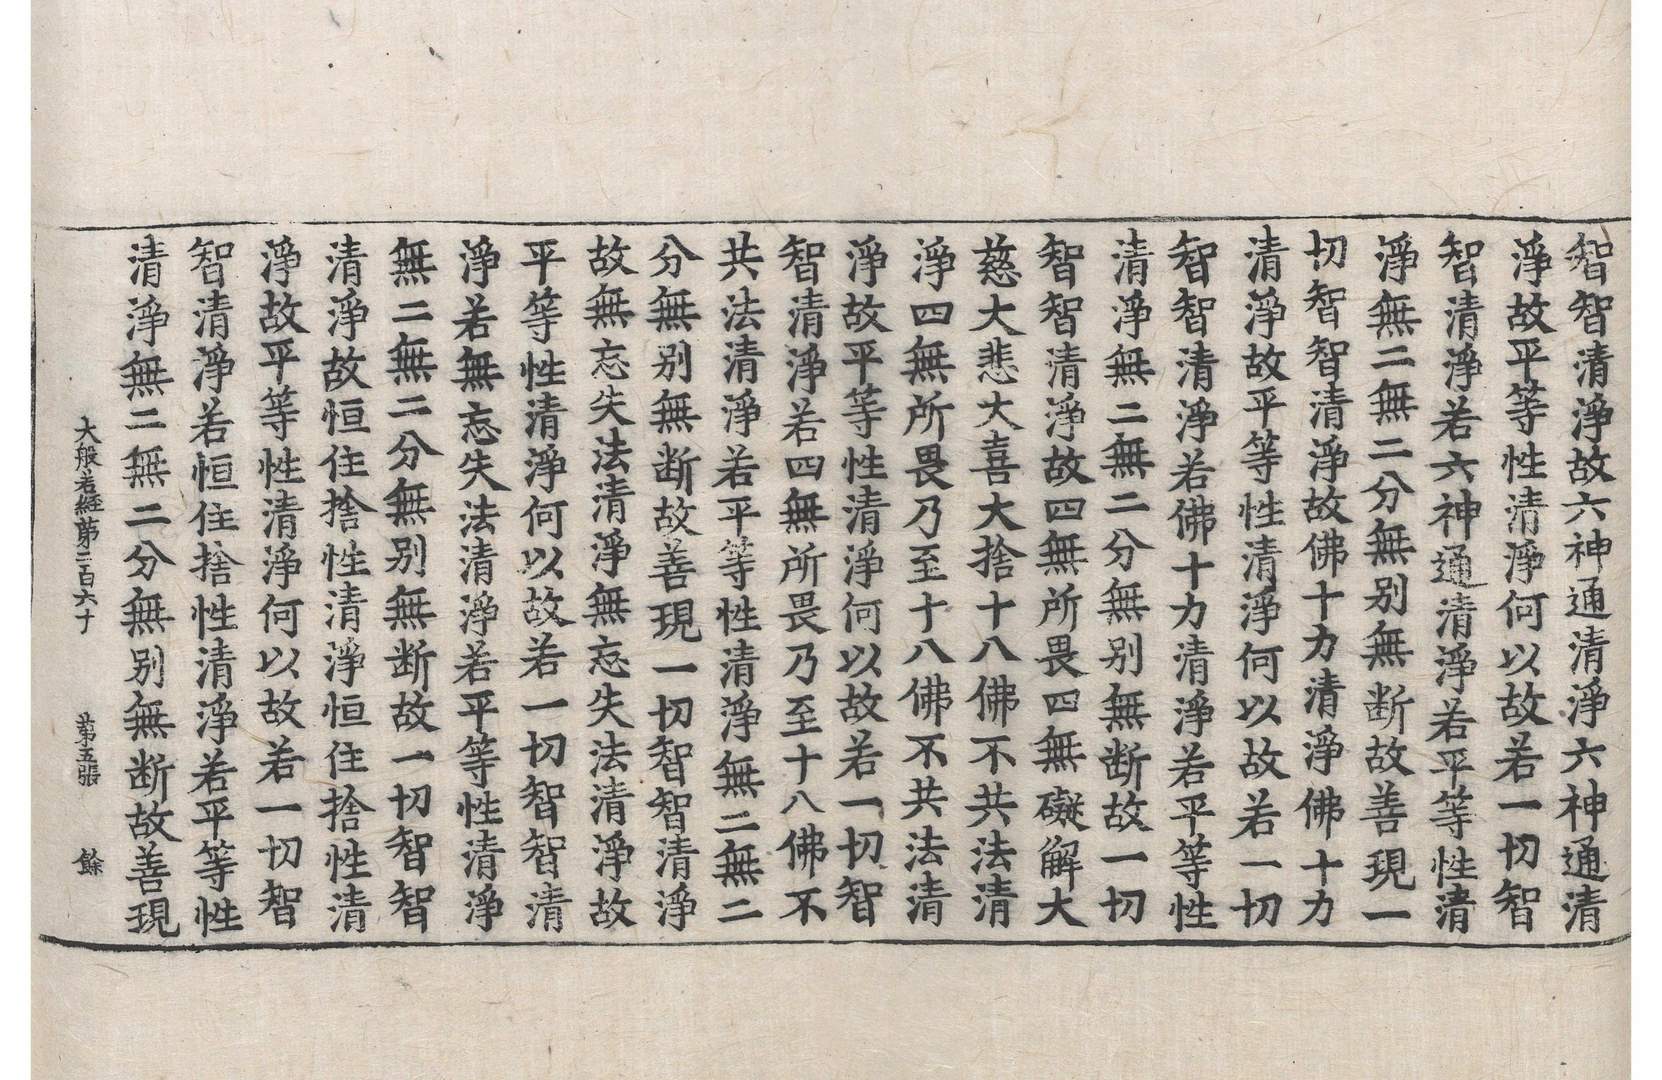 智智清淨故六神通清淨六神通清
淨故平等性清淨何以故若一切智
智清淨若六神通清淨若平等性清
淨無二無二分無别無断故善現一
切智智清淨故佛十力清淨佛十力
清淨故平等性清淨何以故若一切
智智清淨若佛十力清淨若平等性
清淨無二無二分無别無断故一切
智智清淨故四無所畏四無礙解大
慈大悲大喜大捨十八佛不共法清
淨四無所畏乃至十八佛不共法清
淨故平等性清淨何以故若一切智
智清淨若四無所畏乃至十八佛不
共法清淨若平等性清淨無二無二
分無别無断故善現一切智智清淨
故無忘失法清淨無忘失法清淨故
平等性清淨何以故若一切智智清
淨若無忘失法清淨若平等性清淨
無二無二分無别無断故一切智智
清淨故恒住捨性清淨恒住捨性清
淨故平等性清淨何以故若一切智
智清淨若恒住捨性清淨若平等性
清淨無二無二分無别無断故善現
大般若経苐二百六十 苐五張 餘